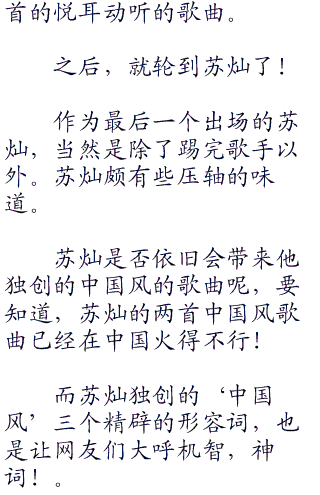 首的悦耳动听的歌曲。
之后，就轮到苏灿了！
作为最后一个出场的苏
灿，当然是除了踢完歌手以
外。苏灿颇有些压轴的味
道。
苏灿是否依旧会带来他
独创的中国风的歌曲呢，要
知道，苏灿的两首中国风歌
曲已经在中国火得不行！
而苏灿独创的‘中国
风’三个精辟的形容词，也
是让网友们大呼机智，神
词！。